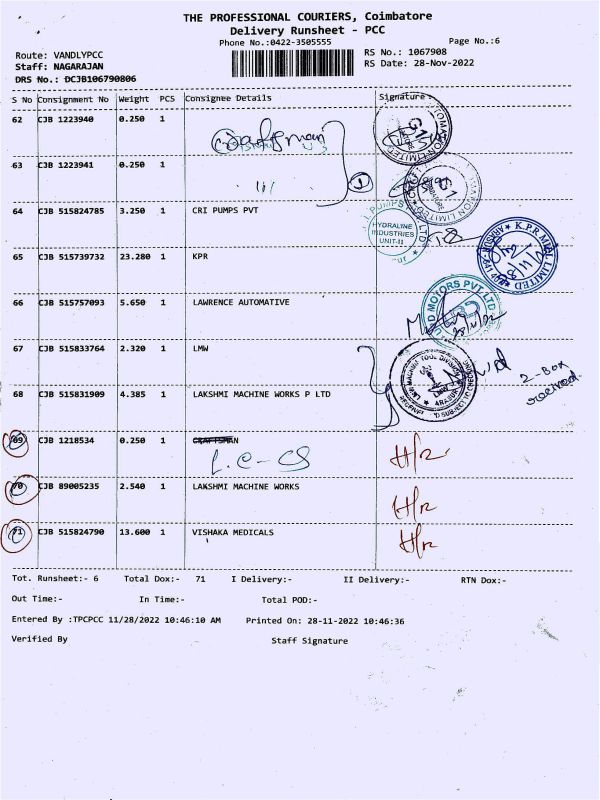 THE PROFESSIONAL COURIERS, Coimbatore
Delivery Runsheet - PCC
Phone No.:0422-3505555
Page No.:6
Route: VANDLYPCC
RS No.: 1067908
Staff: NAGARAJAN
RS Date: 28-Nov-2022
DRS No.: DCJB106790806
S No Consignment No Weight PCS Consignee Details Signature
62 CJB 1223940 0.250 1
63 CJB 1223941 0.250 1
64 CJB 515824785 3.250 1 CRI PUMPS PVT
HYDRALINE
INDUSTRIES
UNIT-II
65 CJB 515739732 23.280 1 KPR
K.P.R MILL LIMITED
66 CJB 515757093 5.650 1 LAWRENCE AUTOMATIVE
MOTORS PVT LTD
67 CJB 515833764 2.320 1 LMW
2-Box
received
68 CJB 515831909 4.385 1 LAKSHMI MACHINE WORKS P LTD
69 CJB 1218534 0.250 1 CRAFTSMAN
L.C-CS
H/R
70 CJB 89005235 2.540 1 LAKSHMI MACHINE WORKS
H/R
71 CJB 515824790 13.600 1 VISHAKA MEDICALS
H/R
Tot. Runsheet:- 6 Total Dox:- 71 I Delivery:- II Delivery:- RTN Dox:-
Out Time:- In Time:- Total POD:-
Entered By :TPCPCC 11/28/2022 10:46:10 AM Printed On: 28-11-2022 10:46:36
Verified By Staff Signature